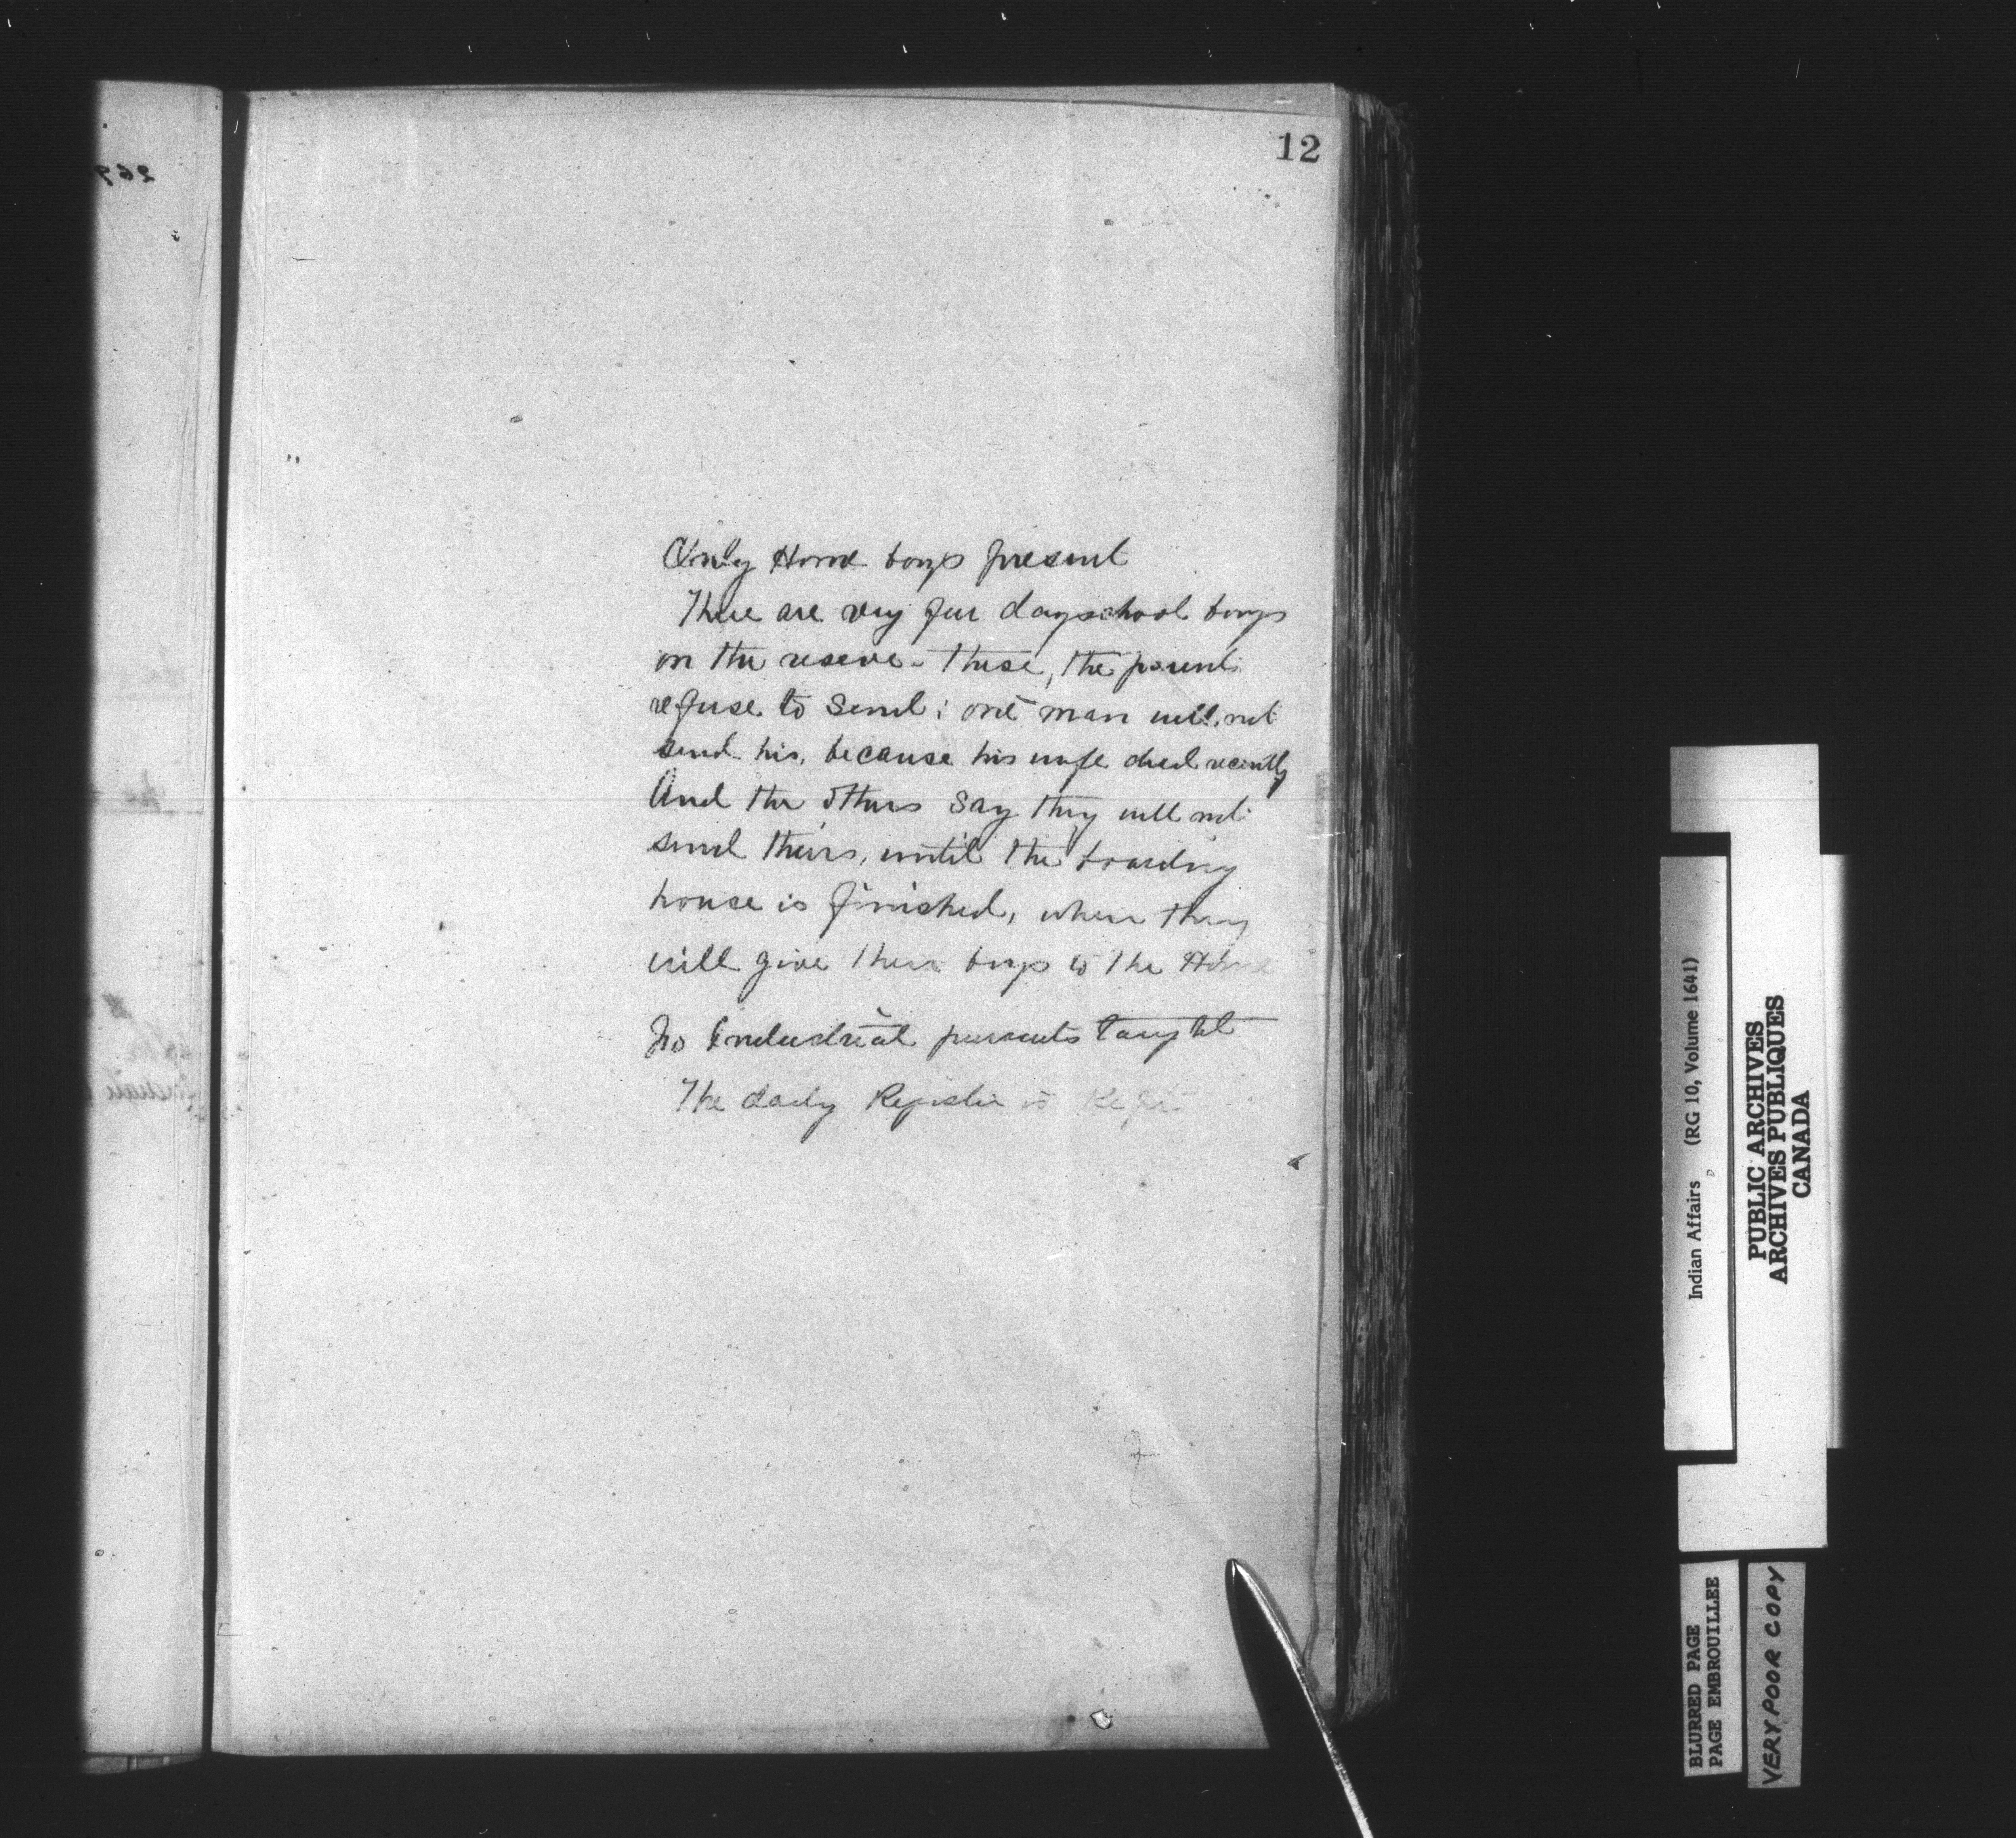 12
Only Home boys present
There are very few dayschool boys
on the reserve - these, the parents
refuse to send; one man will not
send his, because his wife died recently
And the others say they will not
send theirs, until the boarding
house is finished, when they
will give their boys to the Home
No Industrial pursuits taught
The daily Register is Kept
Indian Affairs (RG 10, Volume 1641)
PUBLIC ARCHIVES
ARCHIVES PUBLIQUES
CANADA
BLURRED PAGE
PAGE EMBROUILLEE
VERY POOR COPY